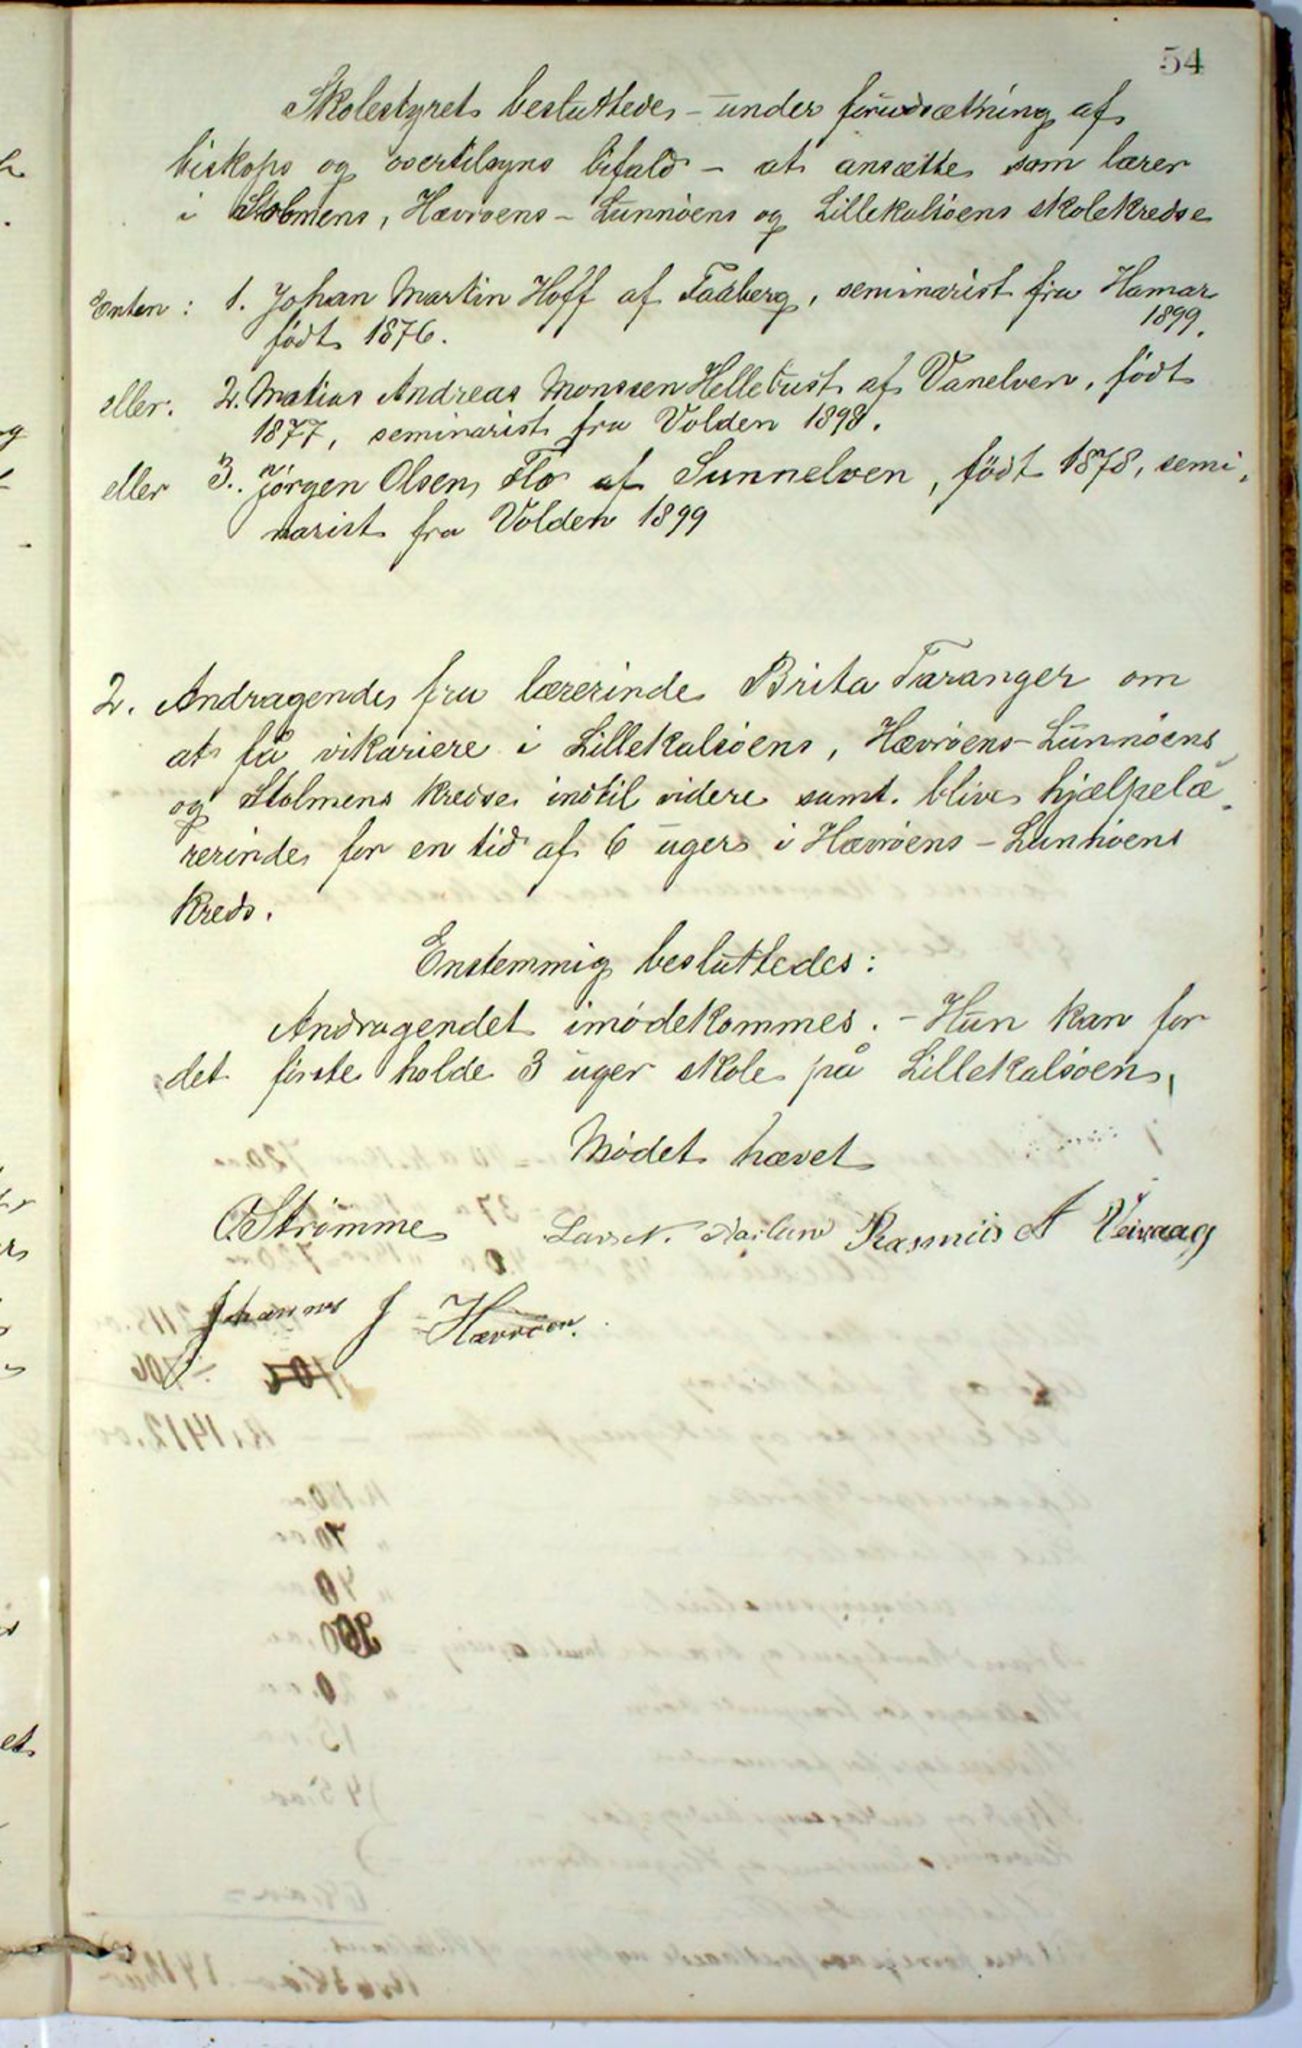 54
Skolestyret besluttede – under forudsætning af
biskops og overtilsyns bifald – at ansætte som lærer
i Stolmens, Hævrøens – Lunnøens og Lillekalsøens skolekredse
Enten : 1. Johan Martin Hoff af Faaberg, seminarist fra Hamar
1899.
født 1876.
eller. 2. Matias Andreas Monssen Hellebust af Vanelven, født
1877, seminarist fra Volden 1898.
eller 3. Jørgen Olsen Flo af Sunnelven, født 1878, semi-
narist fra Volden 1899
2. Andragende fra lærerinde Brita Taranger om
at få vikariere i Lillekalsøens, Hævrøens – Lunnøens
og Stolmens kredse indtil videre samt. blive hjælpelæ-
rerinde for en tid af 6 uger i Hævrøens – Lunnøens
kreds.
Enstemmig besluttedes :
Andragendet imødekommes. – Hun kan for
det første holde 3 uger skole på Lillekalsøen,
Mødet hævet
O Strømme Lars N. Rasmus A Veivaag
Johannes J Hævrøen.